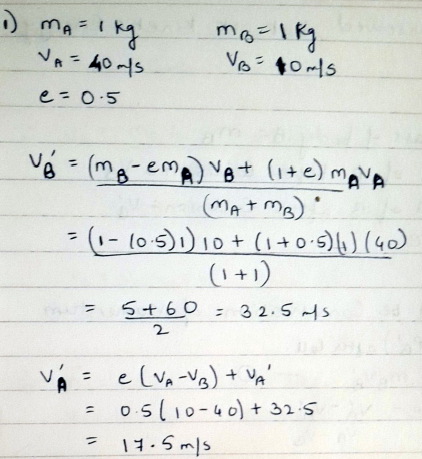 1) mA = 1 kg mB = 1 kg
vA = 40 m/s vB = 10 m/s
e = 0.5
vB' = (mB - emA) vB + (1+e) mA vA
(mA + mB)
= (1 - (0.5)1) 10 + (1+0.5)(1)(40)
(1+1)
= 5+60 = 32.5 m/s
2
vA' = e (vA - vB) + vA'
= 0.5 (10 - 40) + 32.5
= 17.5 m/s